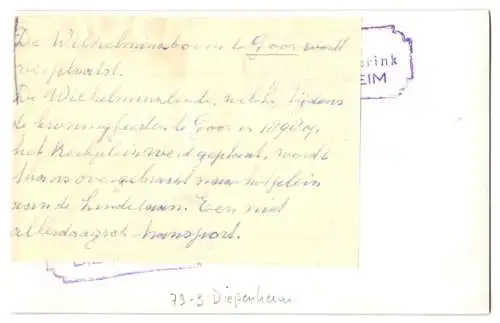 De Wilhelminaboom te Goor wordt
verplaatst.
De Wilhelminalinde, welke tijdens
de kroningsfeesten te Goor in 1898 op
het Kerkplein werd geplant, wordt
thans overgebracht naar het plein
aan de Lindelaan. Een niet
alledaagsch transport.
erink
EIM
73-3 Diepenheim